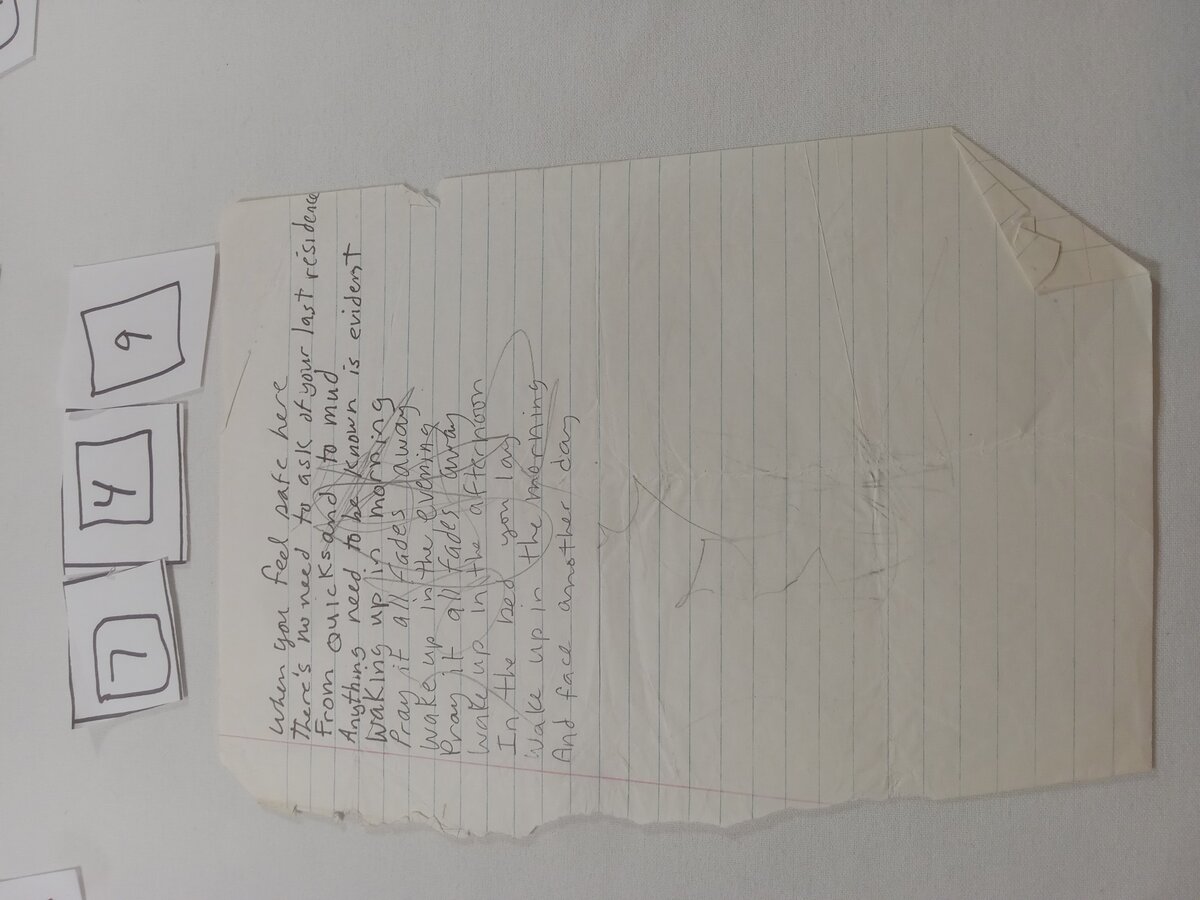 7 4 9
When you feel safe here
There's no need to ask of your last residence
From quicksand to mud
Anything need to be known is evident
Waking up in morning
Pray it all fades away
Wake up in the evening
Pray it all fades away
Wake up in the afternoon
In the bed you lay
Wake up in the morning
And face another day